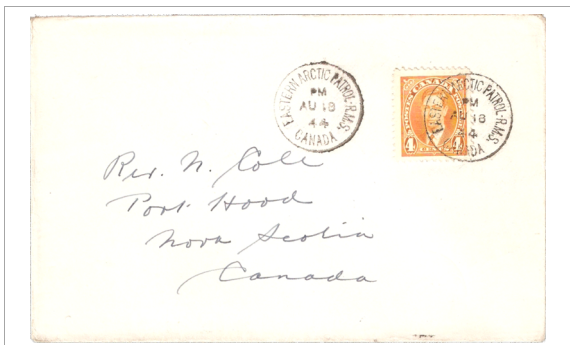 EASTERN ARCTIC PATROL-R.M.S.
PM
AU 18
44
CANADA
CANADA
4 4
EASTERN ARCTIC PATROL-R.M.S.
PM
AU 18
44
CANADA
Rev. N. Cole
Port Hood
Nova Scotia
Canada